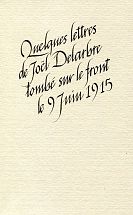 Quelques lettres
de Joël Delarbre
tombé sur le front
le 9 Juin 1915